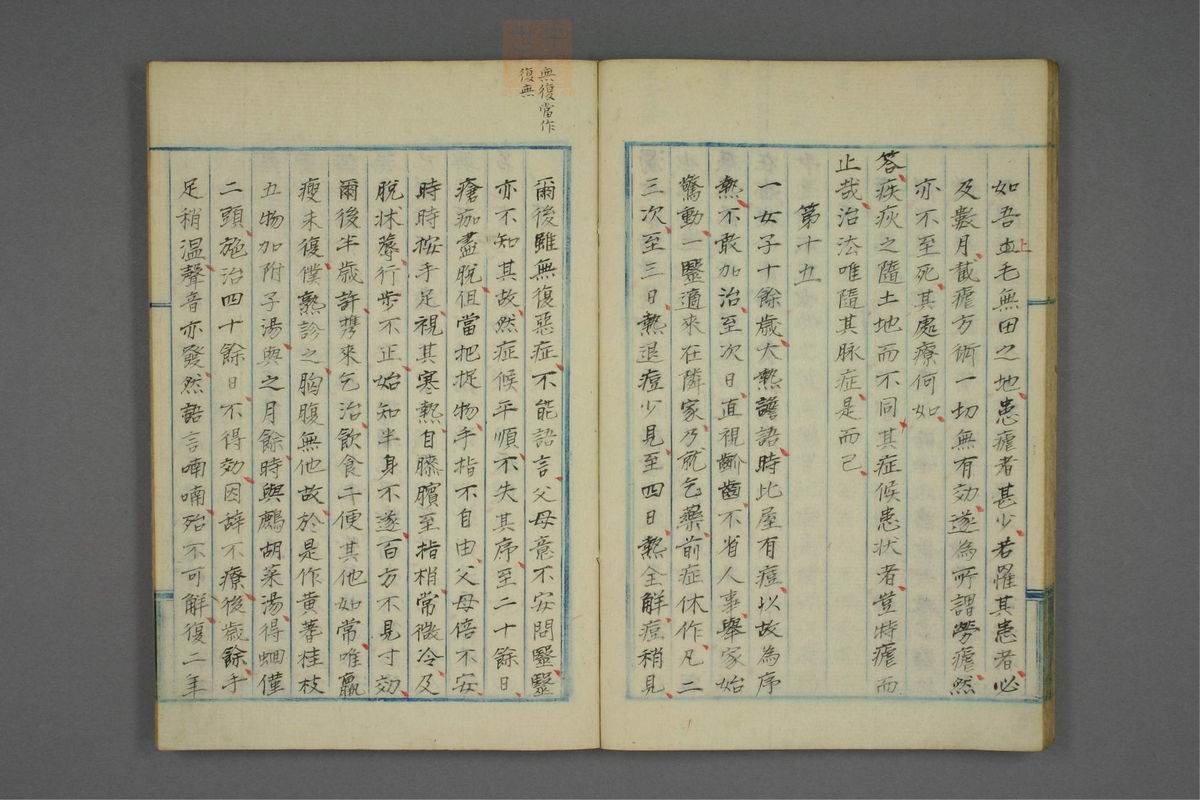 如吾血毛無田之地患瘧者甚少若罹其患者必
上
及數月截瘧方術一切無有効遂為所謂勞瘧然
亦不至死其處療何如
答疾疢之隨土地而不同其症候患状者豈特瘧而
止哉治法唯隨其脉症是而已
第十五
一女子十餘歳大熱譫語時比屋有痘以故為序
熱不敢加治至次日直視齘齒不省人事舉家始
驚動一毉適來在隣家乃就乞藥前症休作凡二
三次至三日熱退痘少見至四日熱全解痘稍見
無復當作
復無
爾後雖無復惡症不能語言父母意不安問毉毉
亦不知其故然症候平順不失其序至二十餘日
瘡痂盡脫但當把捉物手指不自由父母倍不安
時時按手足視其寒熱自膝臏至指梢常微冷及
脫牀蓐行步不正始知半身不遂百方不見寸効
爾後半歳許携來乞治飲食二便其他如常唯羸
瘦未復僕熟診之胸腹無他故於是作黄耆桂枝
五物加附子湯與之月餘時與鷓胡菜湯得蛔僅
二頭施治四十餘日不得効因辞不療後歳餘手
足稍溫聲音亦發然語言喃喃殆不可解復二年